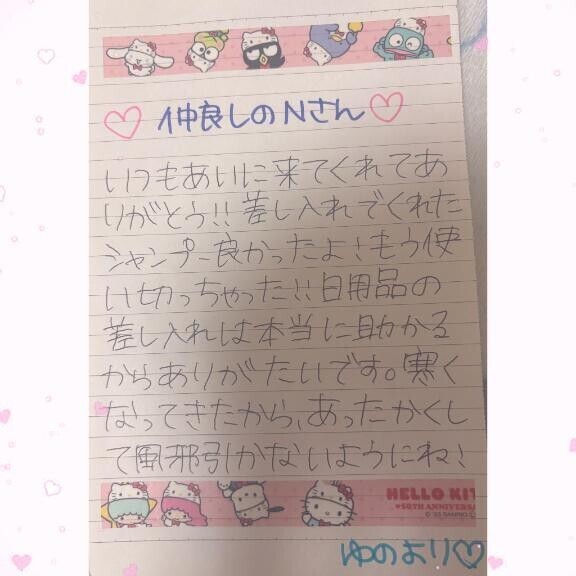 ♡仲良しのNさん♡
いつもあいに来てくれてあ
りがとう!!差し入れでくれた
シャンプー良かったよ!もう使
い切っちゃった!!日用品の
差し入れは本当に助かる
からありがたいです。寒く
なってきたから、あったかくし
て風邪引かないようにね!
HELLO KIT
♥50TH ANNIVERSA
ゆのより♡